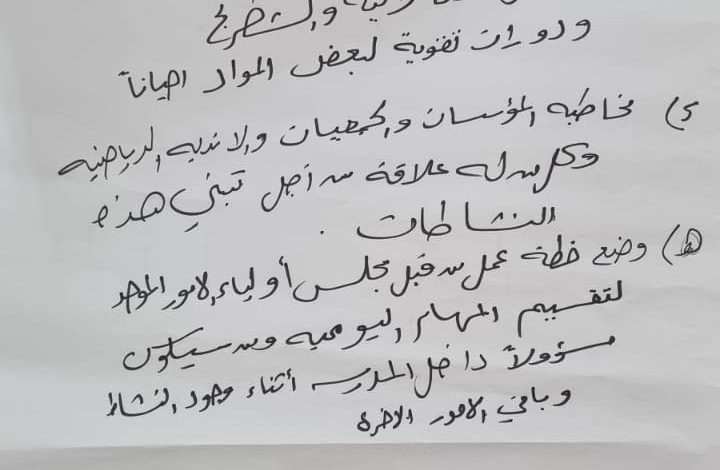 والشطرنج
ودورات تقوية لبعض المواد احياناً
د) مخاطبه المؤسسات والجمعيات والانديه الرياضيه
وكل من له علاقة من أجل تبني هذه
النشاطات .
ه) وضع خطة عمل من قبل مجلس أولياء الامور الموحد
لتقسيم المهام اليوميه ومن سيكون
مسؤولاً داخل المدرسه أثناء وجود النشاط
وباقي الامور الاخرة